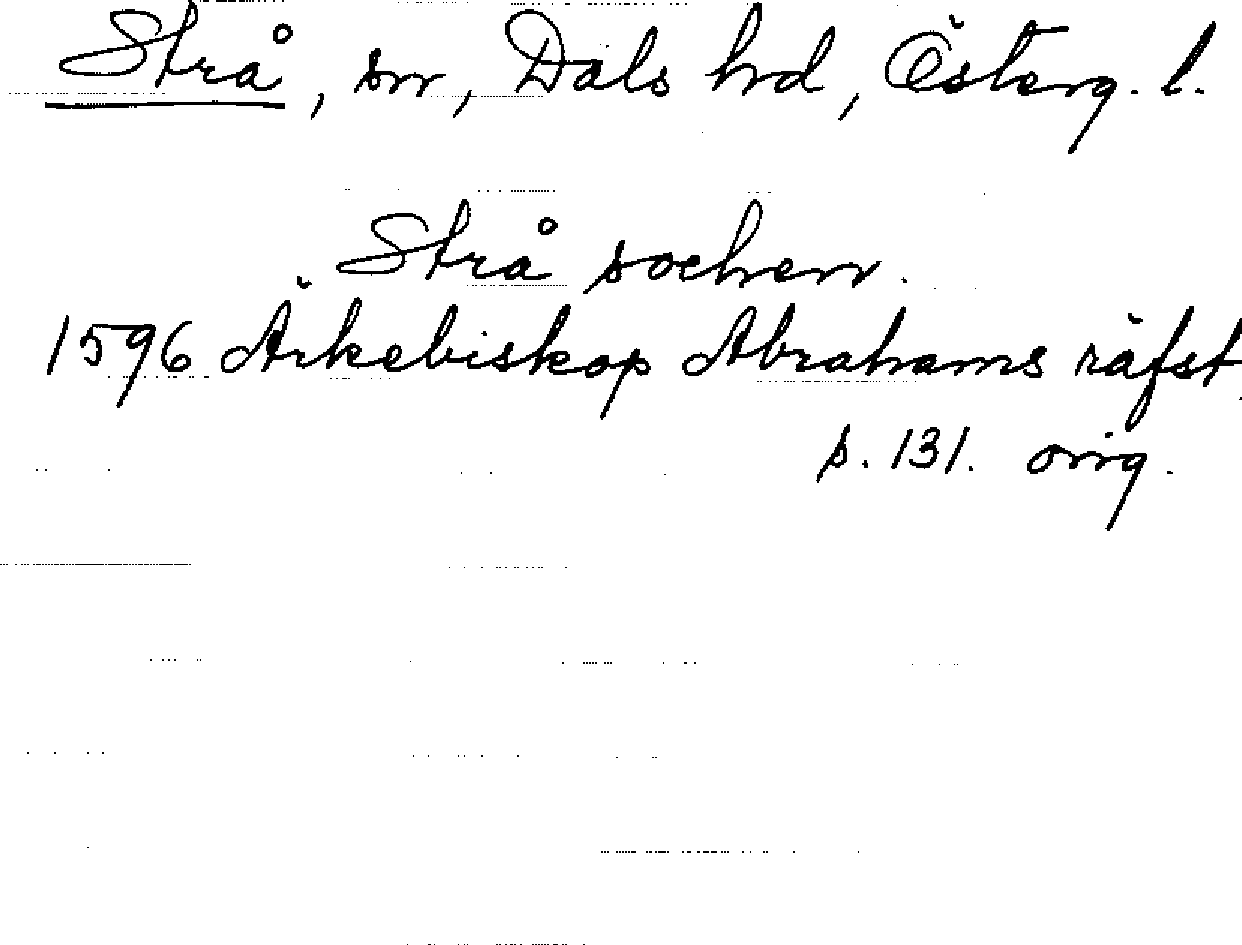 Strå, sn, Dals hd, Österg. l.
Strå sochen.
1596 Ärkebiskop Abrahams räfst,
s. 131. orig.